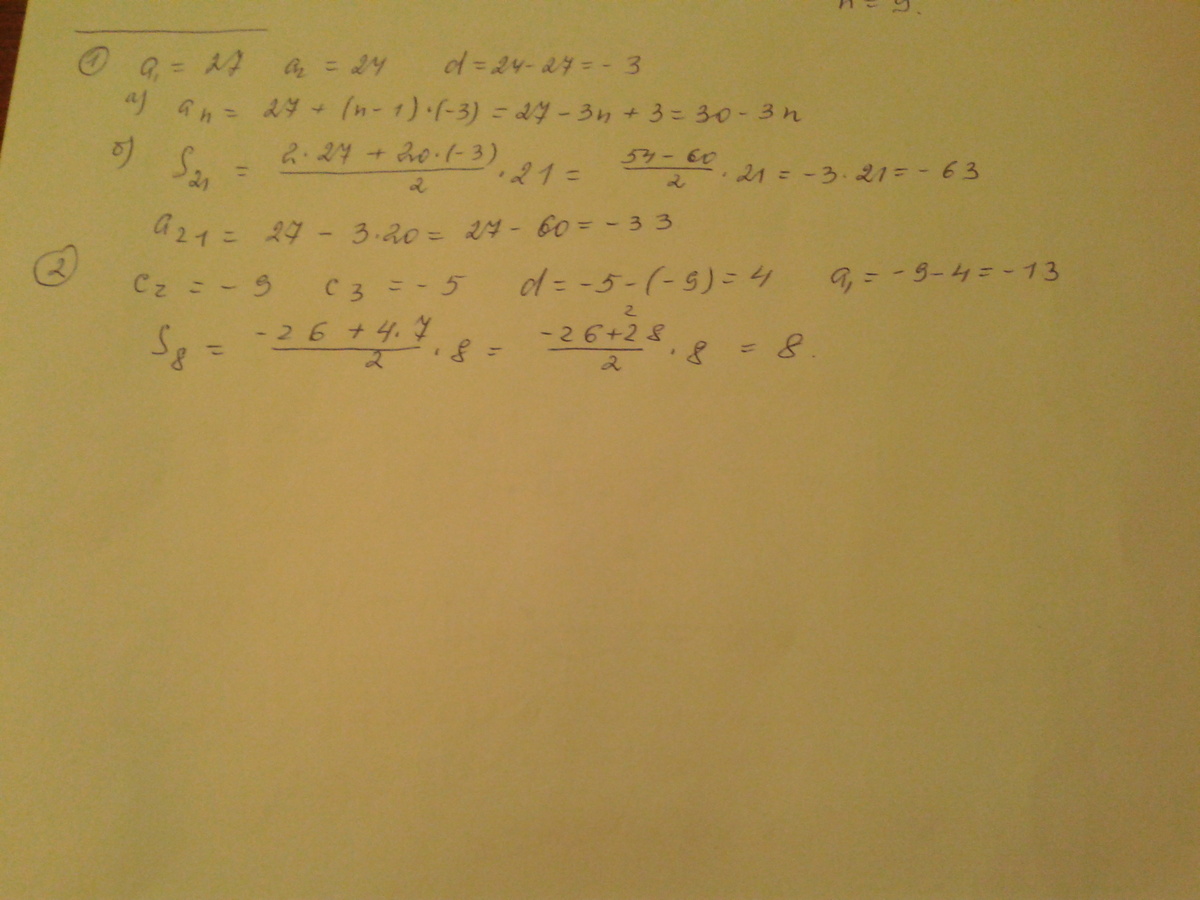 n = 9.
① a₁ = 27 a₂ = 24 d = 24 - 27 = - 3
а) aₙ = 27 + (n - 1) · (-3) = 27 - 3n + 3 = 30 - 3n
б) S₂₁ = (2 · 27 + 20 · (-3))/2 · 21 = (54 - 60)/2 · 21 = -3 · 21 = - 63
a₂₁ = 27 - 3·20 = 27 - 60 = - 33
② c₂ = - 9 c₃ = - 5 d = -5 - (-9) = 4 a₁ = -9 - 4 = -13
2
S₈ = (-26 + 4·7)/2 · 8 = (-26+28)/2 · 8 = 8.